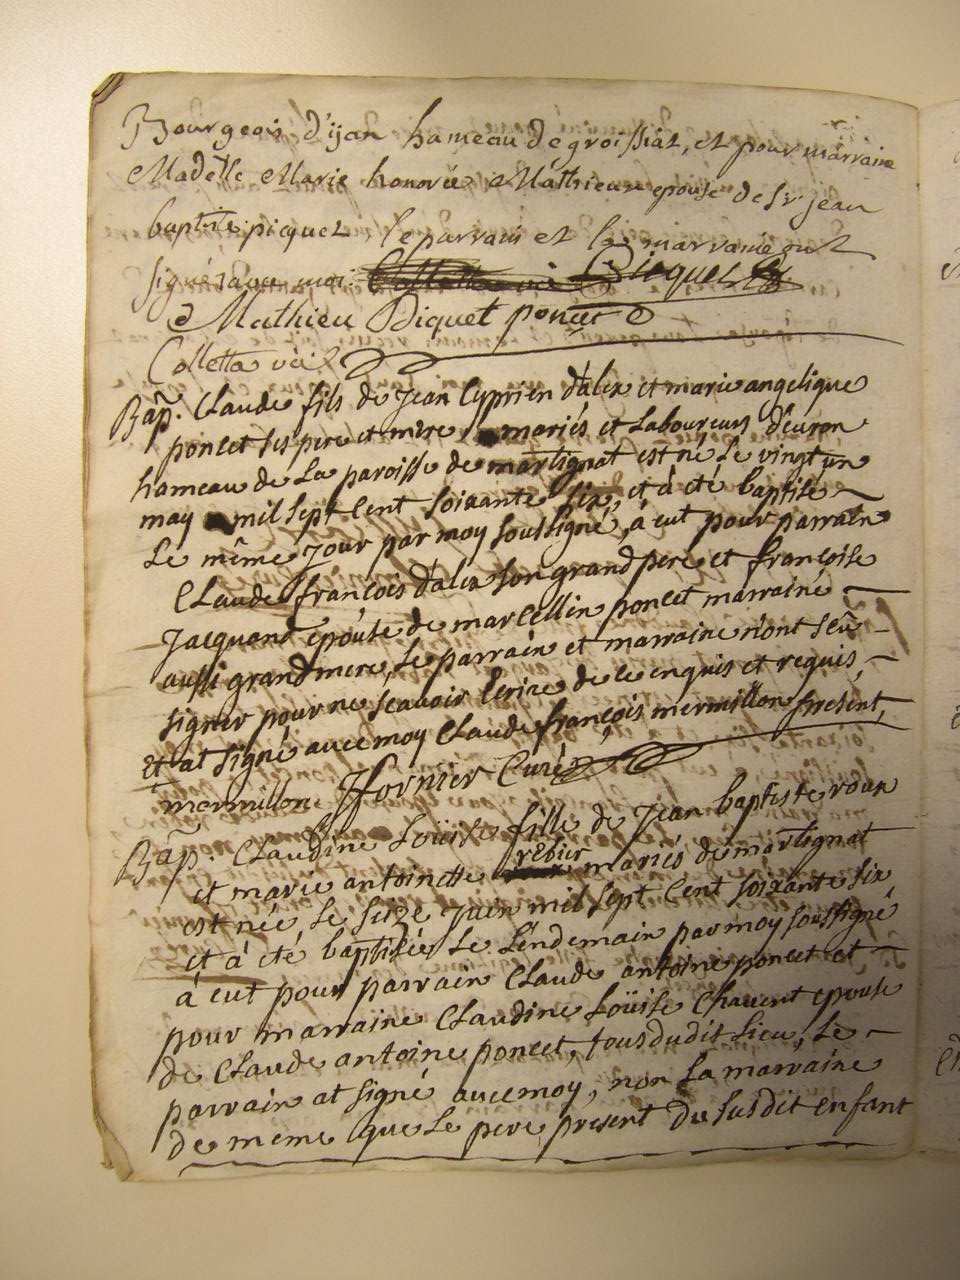 Bourgeois d'ijan hameau de groissiat, et pour marraine
Madelle Marie honorée Mathieu epouse de Sr jean
baptiste picquet le parrain et la marraine ont
signé avec moi. Piquet
Mathieu Piquet poncet
Colletta vic
Bap. Claude fils de Jean Cyprien dalex et marie angelique
poncet ses pere et mere mariés et Laboureurs d'evron
hameau de La paroisse de martignat est né Le vingt un
may mil sept Cent soixante six, et à été baptisé
Le même Jour par moy soussigné, à eut pour parrain
Claude françois dalex son grand pere et françoise
Jacquand epouse de marcellin poncet marraine
aussi grand mere, Le parrain et marraine n'ont sçû
signer pour ne sçavoir Ecrire de ce enquis et requis,
Et at signé avec moy Claude françois mermillon present,
mermillon fornier Curé
Bap. Claudine Loüise fille de Jean baptiste roux
et marie antoinette rebier mariés de martignat
est née, Le seize Juin mil sept Cent soixante six,
et à été baptisée Le Lendemain par moy soussigné
à eut pour parrain Claude antoine poncet et
pour marraine Claudine Loüise Chavent epouse
de Claude antoine poncet, tous dudit Lieu, Le
parrain at signé avec moy, non La marraine
de meme que Le pere present du susdit enfant